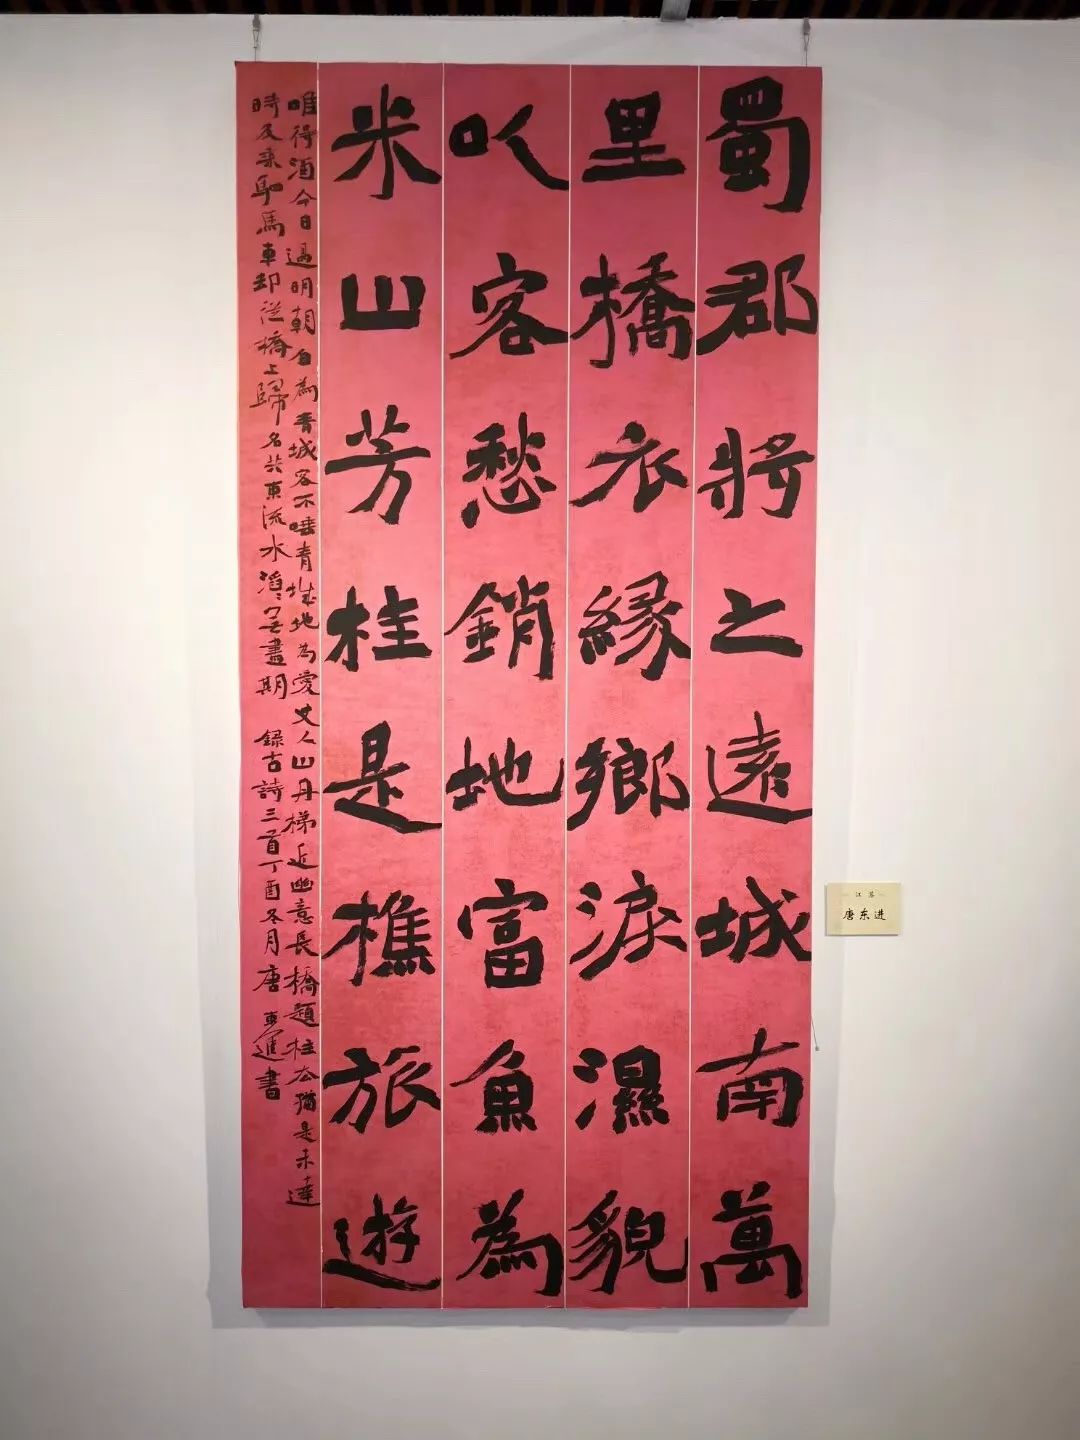 蜀郡將之遠城南萬
里橋衣緣鄉淚濕貌
以客愁銷地富魚為
米山芳桂是樵旅遊
唯得酒今日過明朝自為青城客不唾青城地為愛丈人山丹梯近幽意長橋題柱去猶是未達
時及乘駟馬車却從橋上歸名共東流水滔〻無盡期 録古詩三首丁酉冬月唐東進書
江苏
唐东进